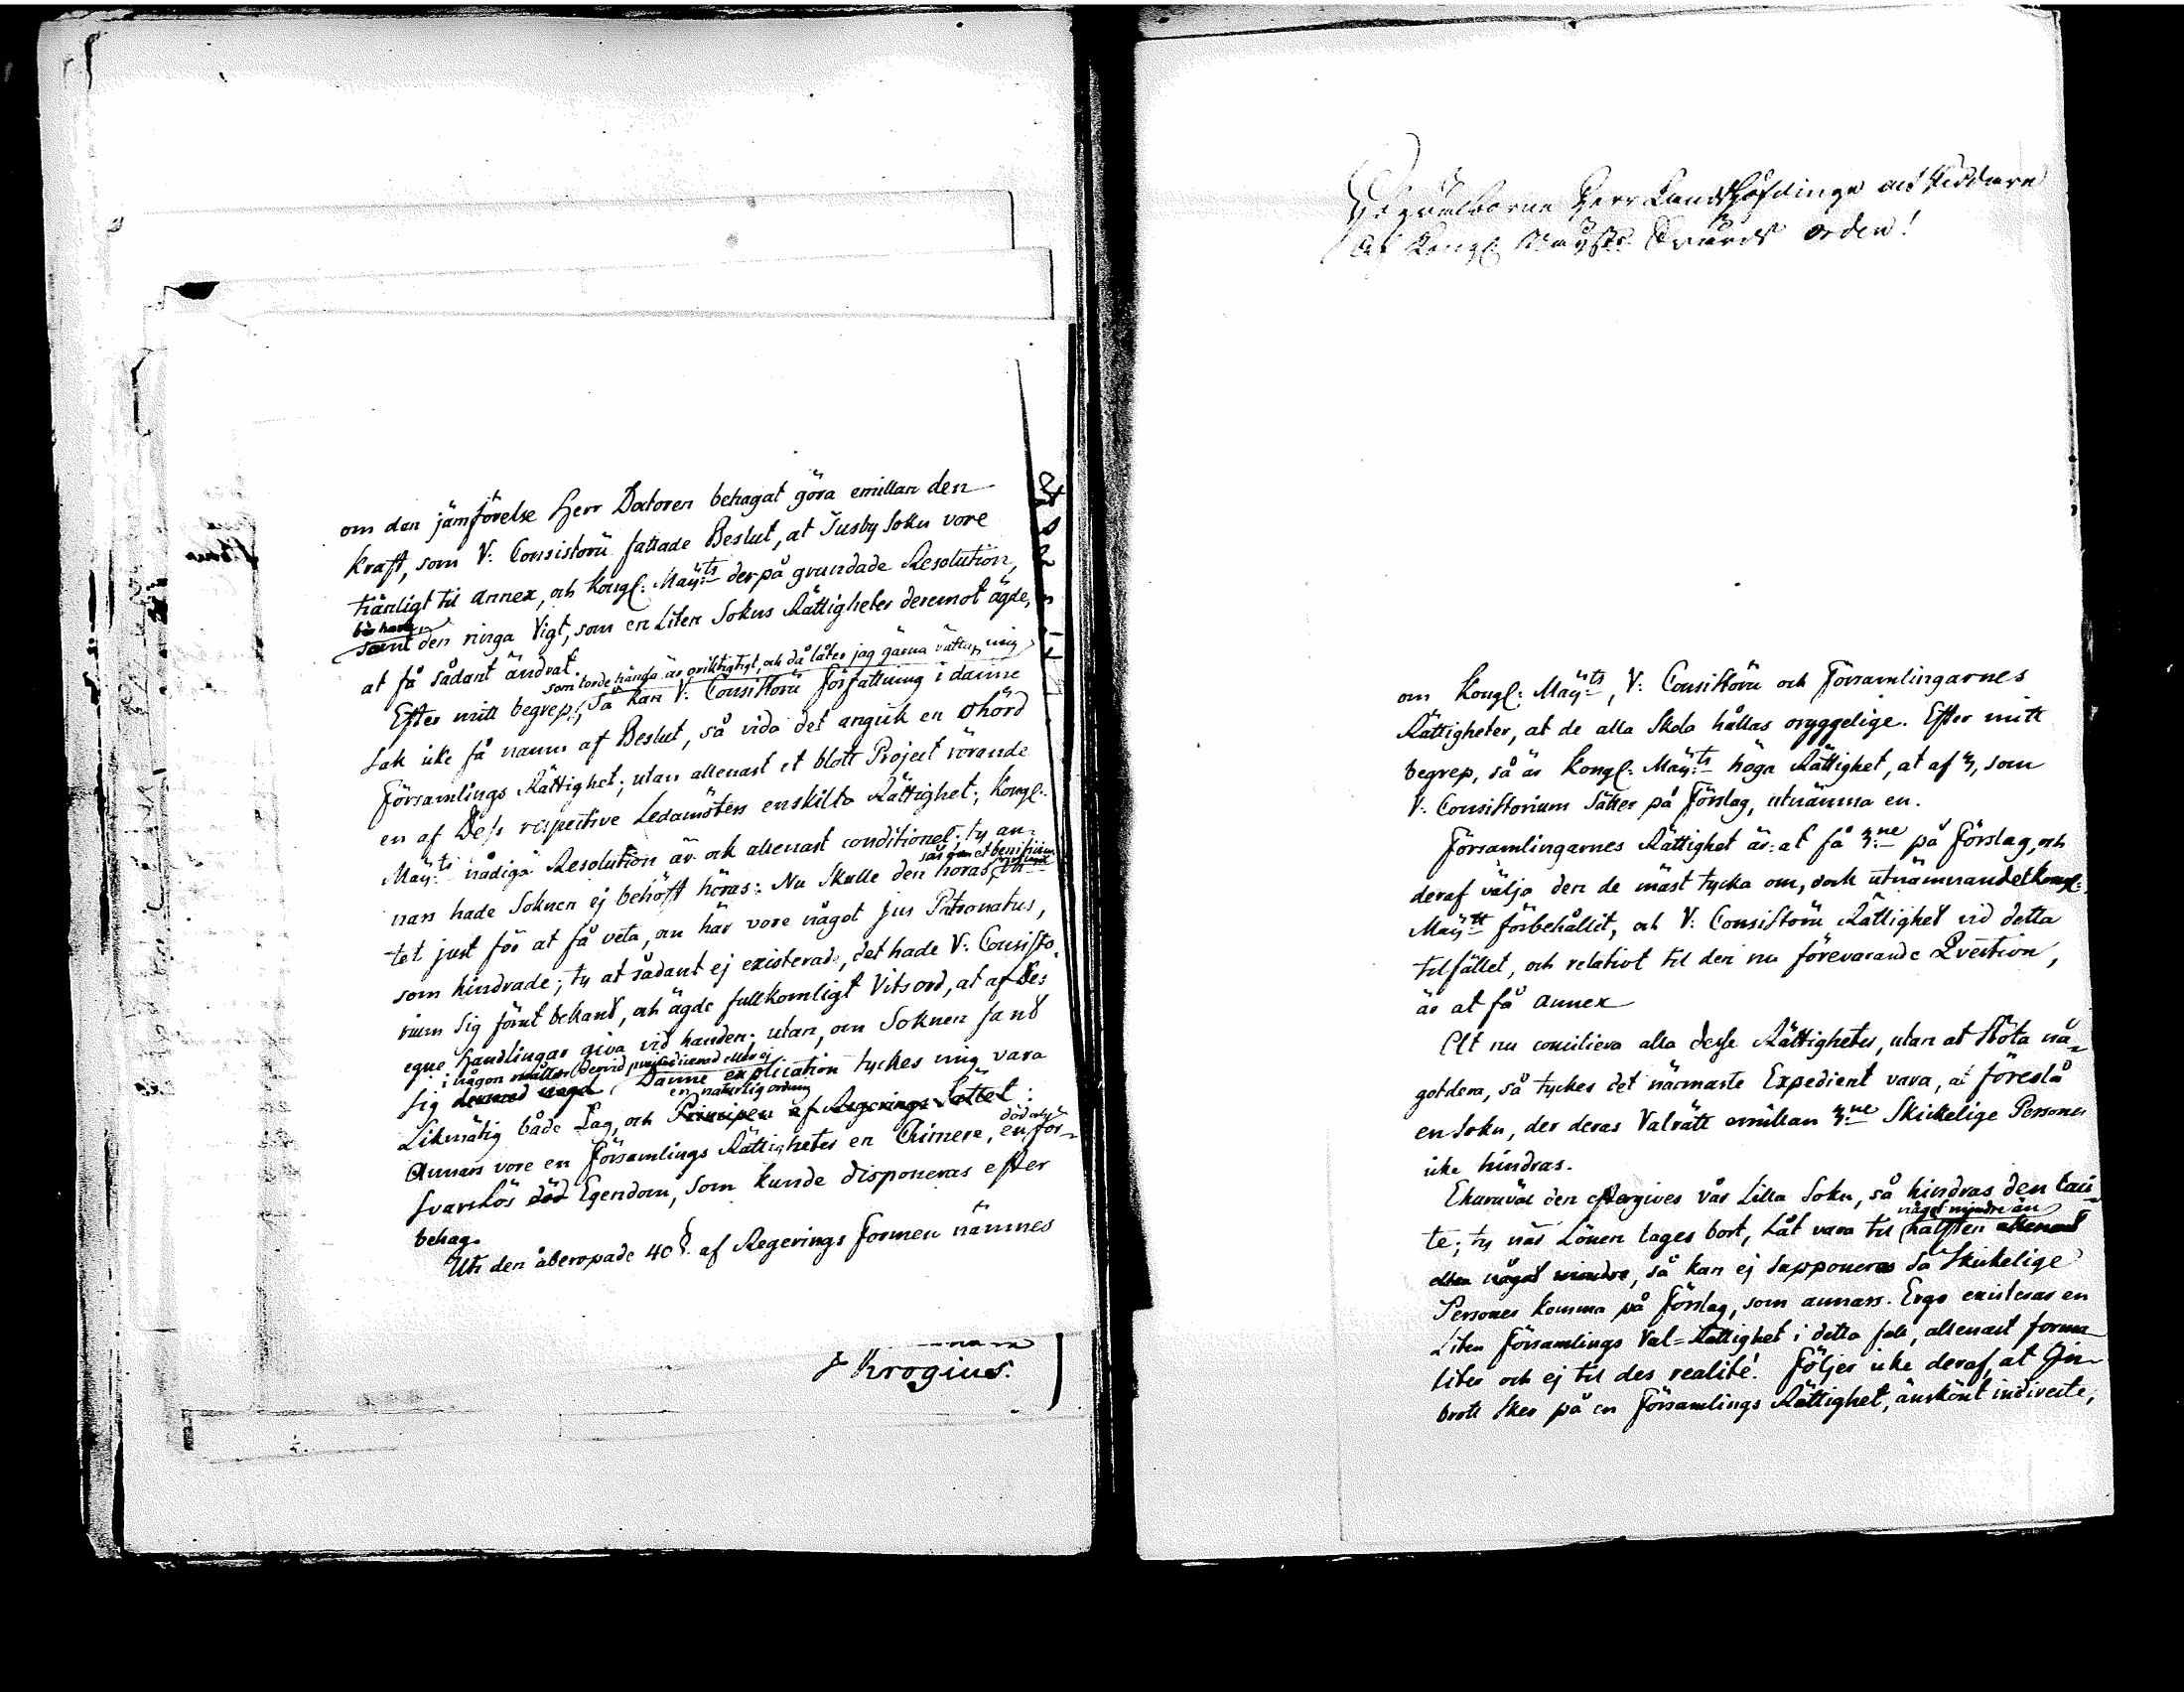 om den jämförelse Herr Doctoren behagat göra emillan den
kraft, som V: Consistorii fattade Beslut, at Jusby Sokn vore
tiänligt til annex, och Kongl: Maÿ:ts derpå grundade Resolution,
bör hava
samt den ringa Vigt, som en Liten Sokns Rättigheter deremot ägde,
at få sådant ändrat.
som torde hända är oriktigtigt, och då låter jag gärna rätta mig
Efter mitt begrep, Så kan V: Consistorii författning i danne
sak icke få namn af Beslut, så vida det angick en ohörd
Församlings Rättighet; utan allenast et blott Project rörande
en af Dess respective Ledamöters enskilta Rättighet; Kongl:
Maÿ:ts nådiga Resolution är ock allenast conditionel; ty an-
nars hade Soknen ej behöft höras: Nu Skulle den höras,
tet just för at få veta, om här vore något jus Patronatus,
som hindrade; ty at sådant ej existerade, det hade V: Consisto
rium Sig förut bekant, och ägde fullkomligt Vitsord, at af Des
egne Handlingar giva vid handen; utan, om Soknen fant
i någon måtto dervid prejudicerad eller ej
Sig Danne explication tyckes mig vara
en naturlig ordning
Likmätig både Lag, och Principen af Regerings Sättet:
Annars vore en Församlings Rättigheter en Chimere, en för-
svarslös död Egendom, som kunde disponeras efter
behag.
Uti den åberopade 40 §. af Regerings Formen nämnes
J Krogius.
Högvälborne Herr Landshöfdinge och Riddare
Af Kongl Maÿsts Svärds Orden!
om Kongl: Maÿ:ts, V: Consistorii och Församlingarnes
Rättigheter, at de alla Skola hållas oryggelige. Efter mitt
begrep, så är Kongl: Maÿ:ts höga Rättighet, at af 3, som
V: Consistorium Sätter på Förslag, utnämna en.
Församlingarnes Rättighet är: at få 3:ne på Förslag, och
deraf välja den de mäst tycka om, dock utnämnandet Kongl:
Maÿ:tt förbehållit, och V: Consistorii Rättighet vid detta
tilfället, och relativt til den nu förevarande Qvestion,
är at få annex
At nu conciliera alla desse Rättigheter, utan at Stöta nå-
gotdera, så tyckes det närmaste Expedient vara, at föreslå
en Sokn, der deras Valrätt emillan 3:ne Skickelige Personer
icke hindras.
Ehuruväl den eftergives vår Lilla Sokn, så hindras den taci-
något mindre än
te; ty när Lönen tages bort, Låt vara til hälften allenast
eller något mindre, så kan ej supponeras så Skickelige
Personer komma på Förslag, som annars. Ergo existerar en
Liten Församlings Val-Rättighet i detta fall, allenast forma-
liter och ej til des realité. Följer icke deraf, at In-
brott Sker på en Församlings Rättighet, änskönt indirecte,